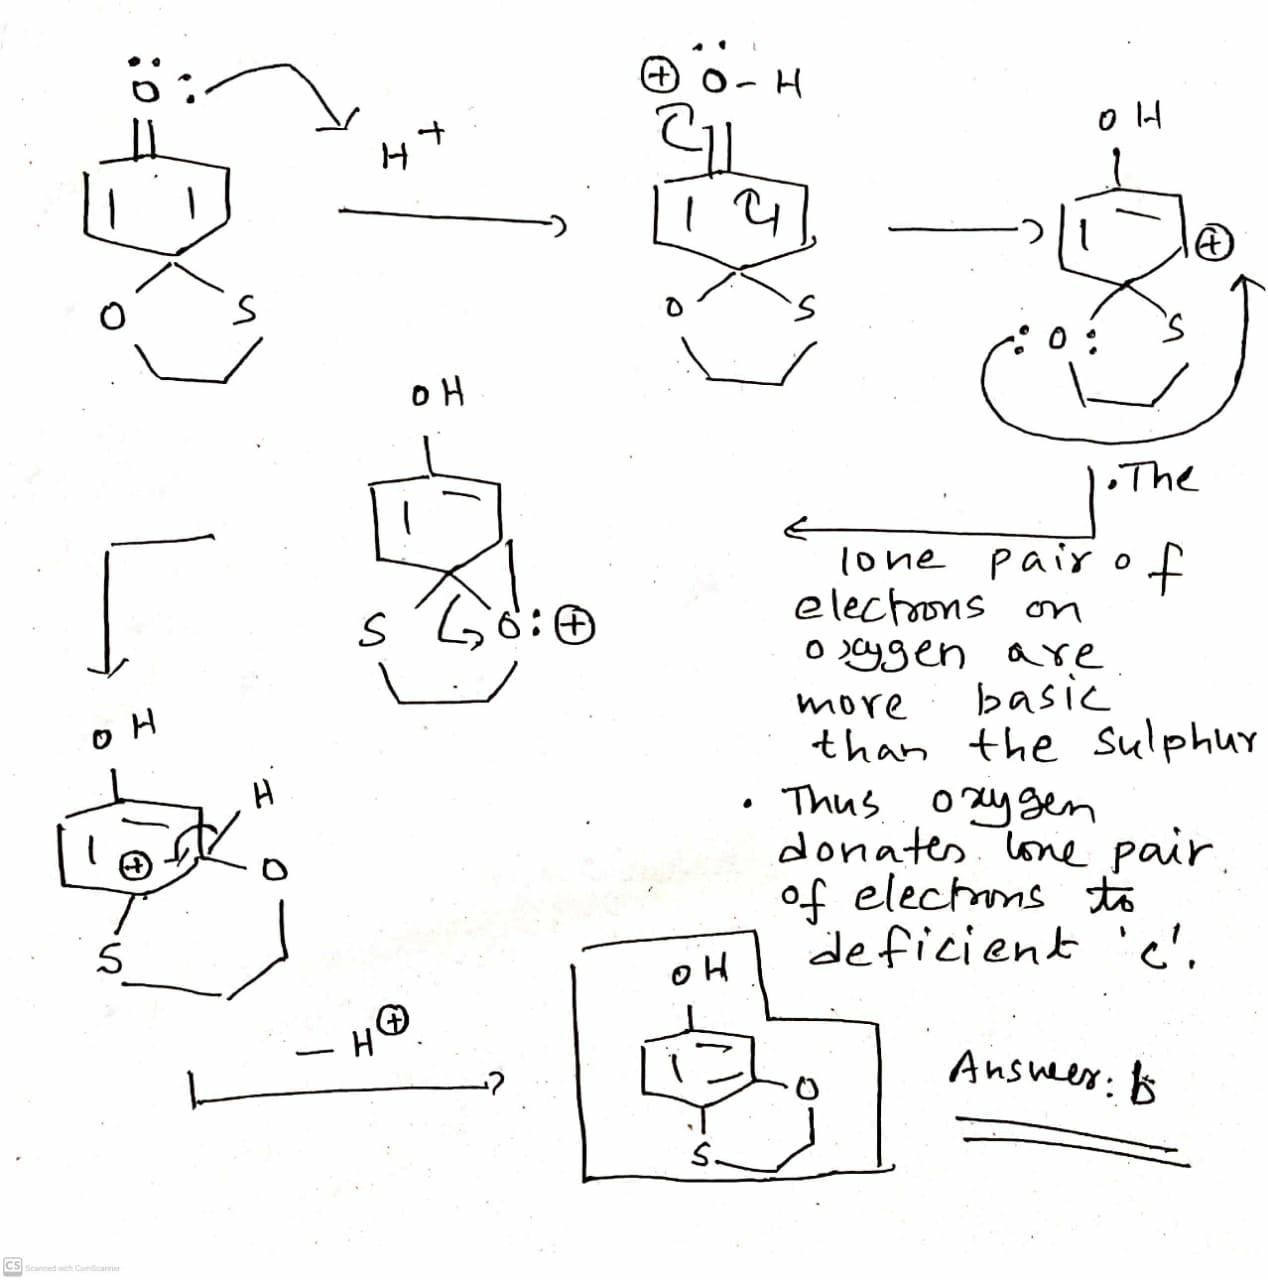 Ö:
H+
⊕ Ö-H
OH
O
S
O
S
⊕
:O:
S
OH
S
O:⊕
.The
lone pair of
electrons on
oxygen are
more basic
than the sulphur
. Thus oxygen
donates lone pair
of electrons to
deficient 'c'.
OH
H
⊕
O
S
- H⊕
OH
O
S
Answer: b
CS Scanned with CamScanner